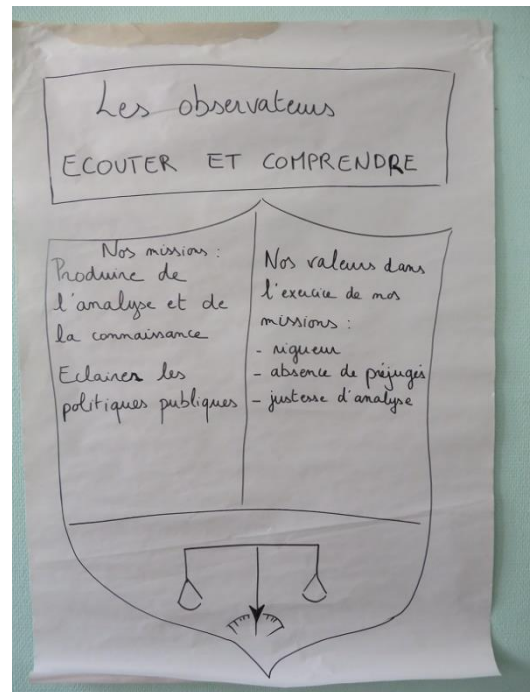 Les observateurs
ECOUTER ET COMPRENDRE
Nos missions :
Produire de
l'analyse et de
la connaissance
Eclairer les
politiques publiques
Nos valeurs dans
l'exercice de nos
missions :
- rigueur
- absence de préjugés
- justesse d'analyse